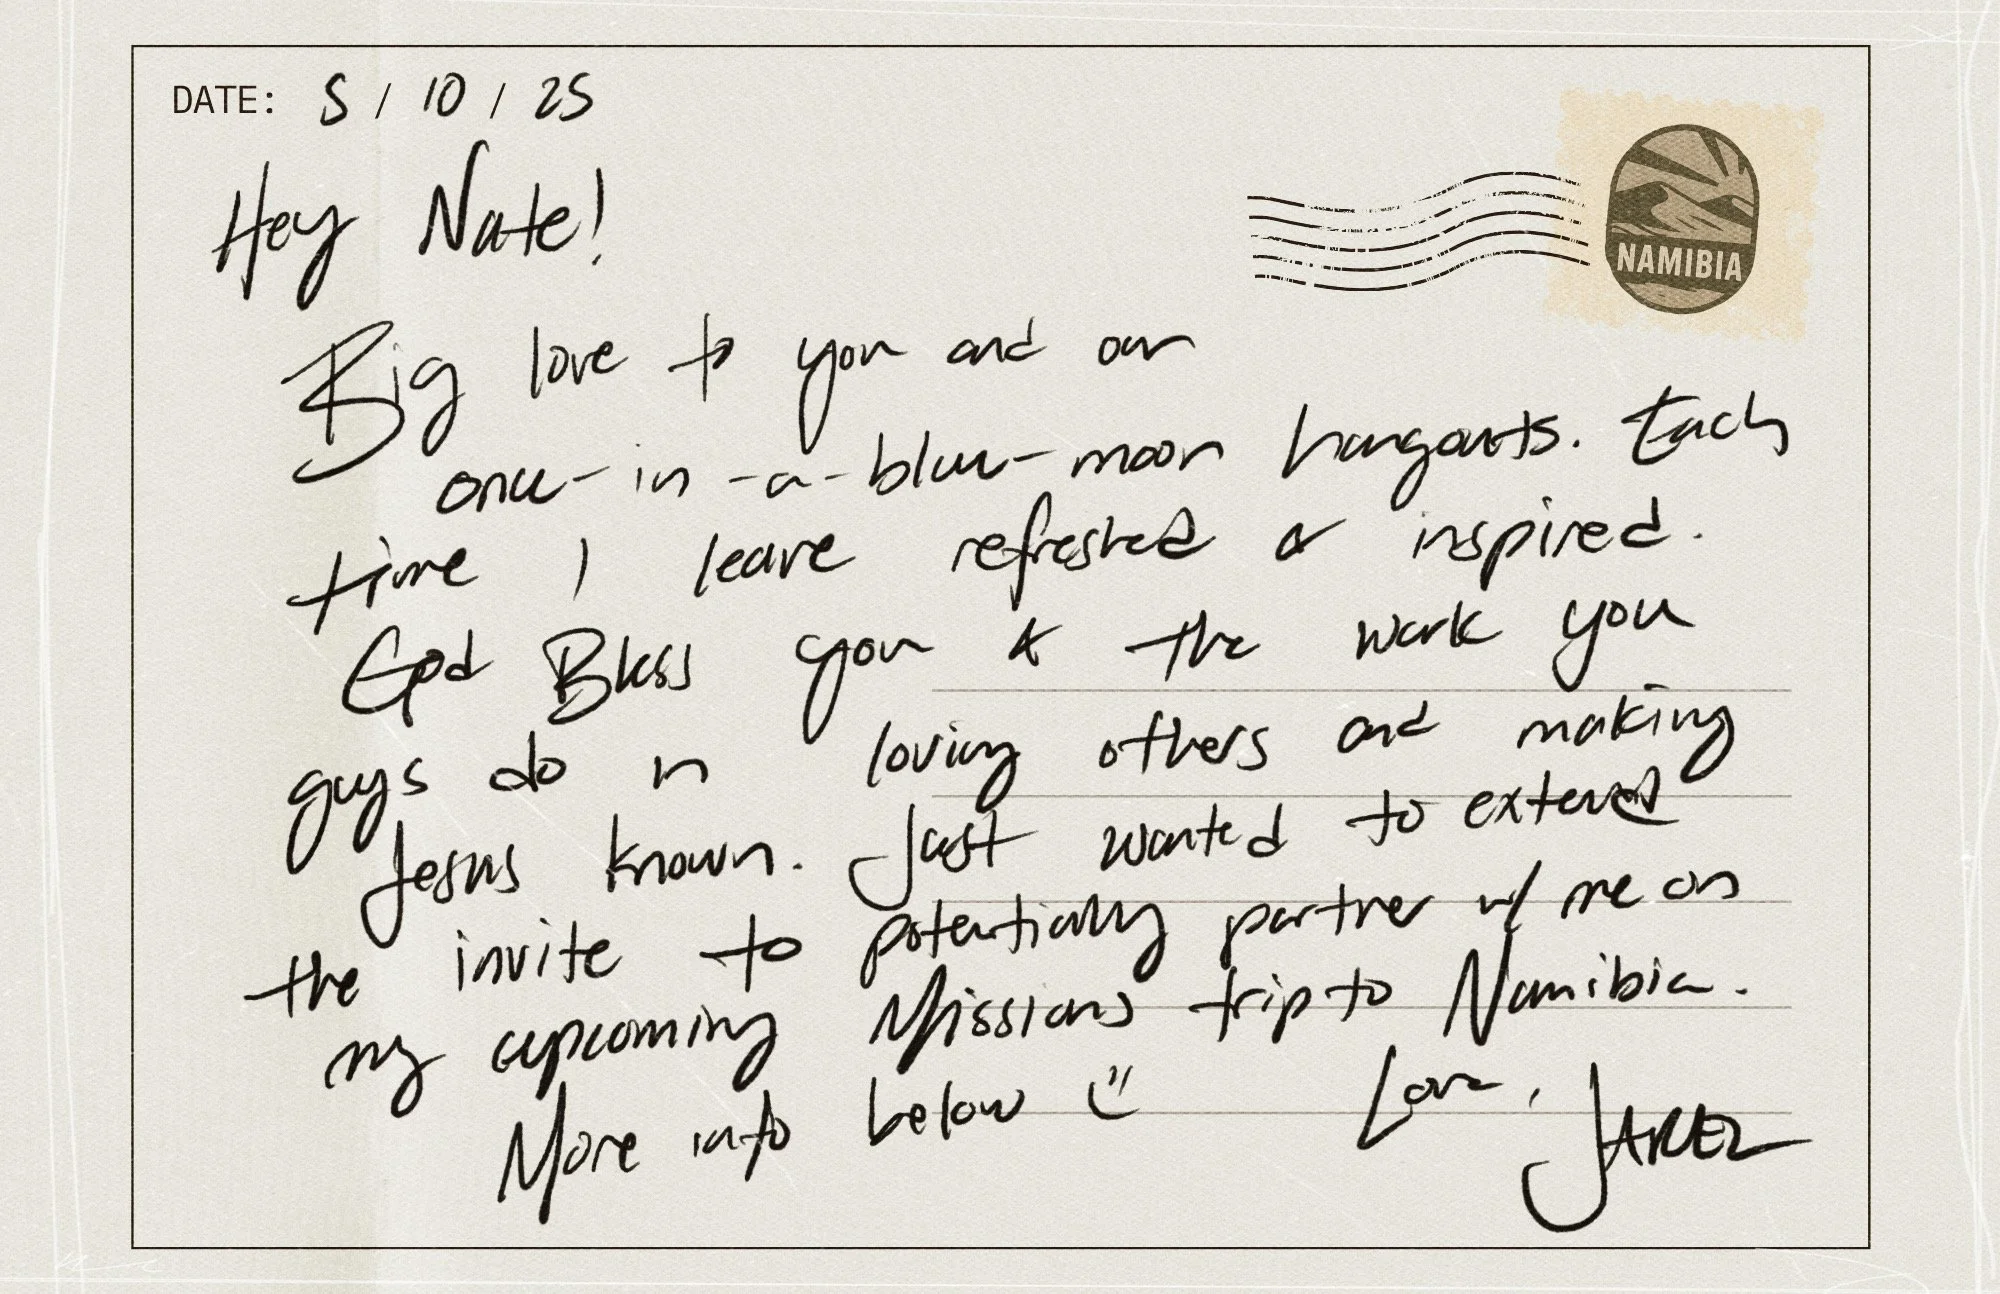 DATE: 5 / 10 / 25
NAMIBIA
Hey Nate!
Big love to you and our
once-in-a-blue-moon hangouts. Each
time I leave refreshed & inspired.
God Bless you & the work you
guys do in loving others and making
Jesus known. Just wanted to extend
the invite to potentially partner w/ me on
my upcoming Missions trip to Namibia.
More info below Love,